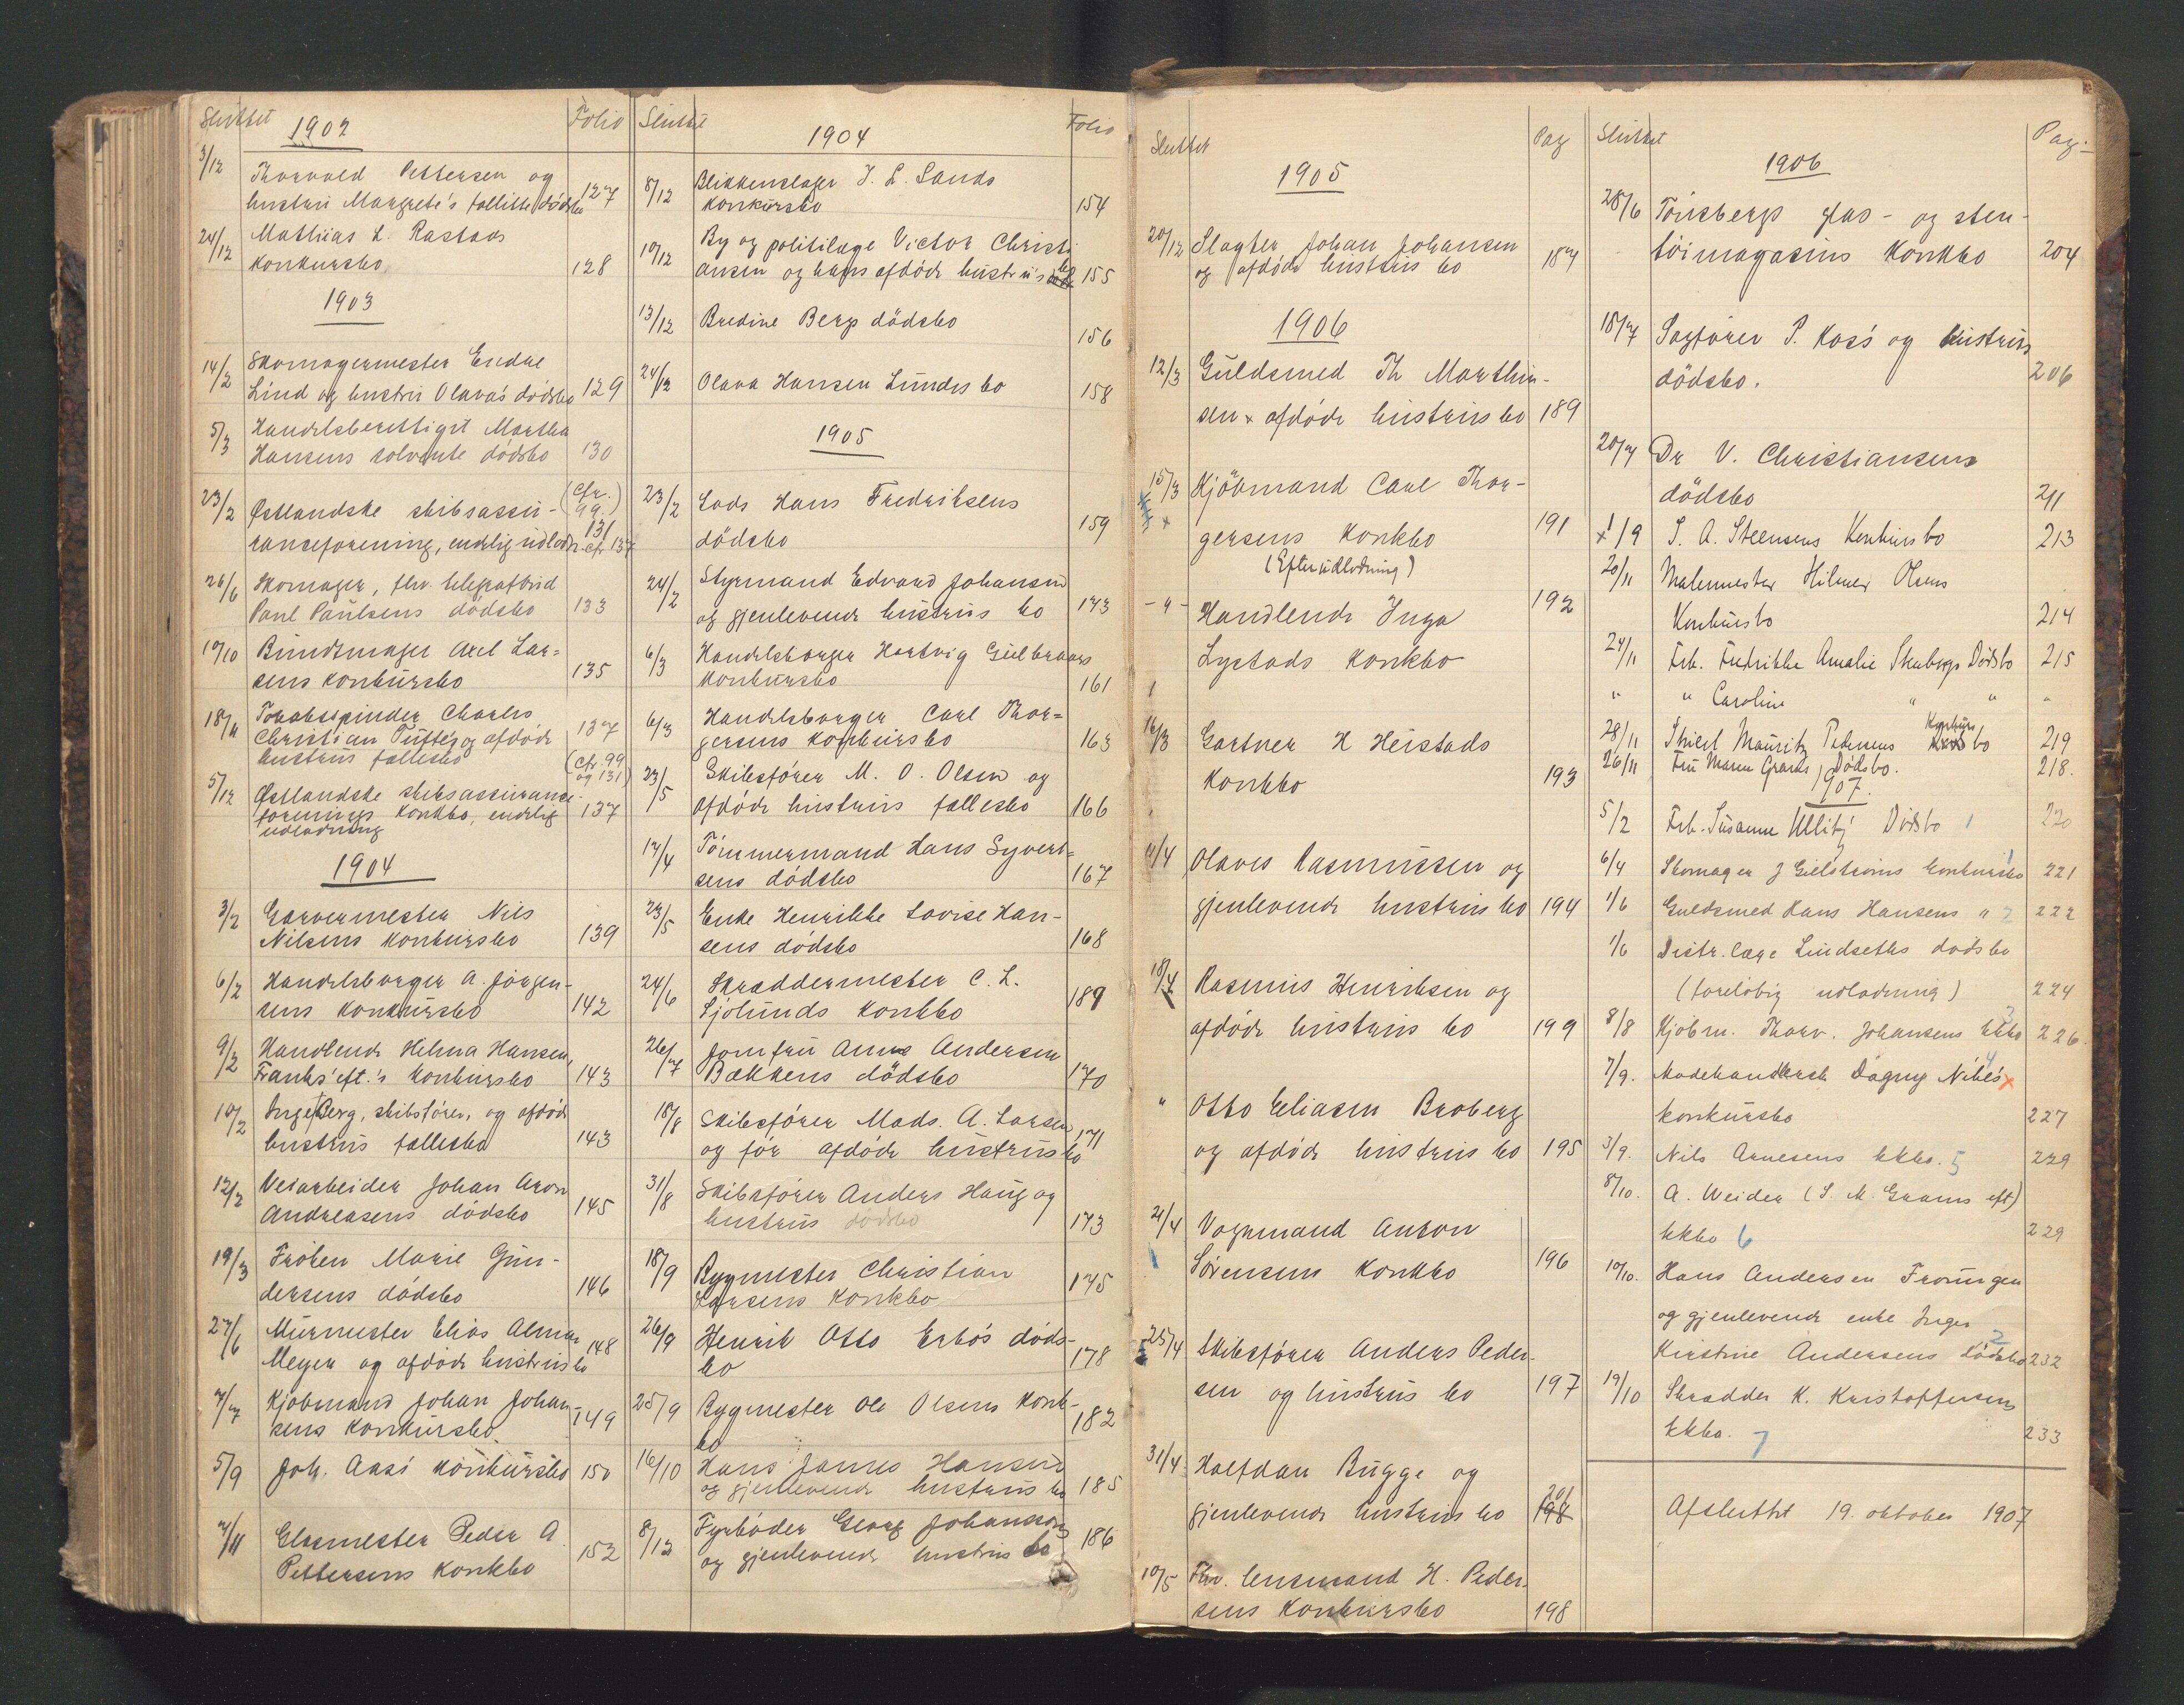 Sluttet 1902 Folio
3/12 Thorvald Pettersen og
hustru Margrete's fallitte dödsbo 127
24/12 Mathias L. Rastads
konkursbo 128
1903
14/2 Skomagermester Endre
Lind og hustru Olava's dödsbo 129
5/3 Handelsberettiget Martha
Hansens solvente dödsbo 130
23/2 Østlandske skibsassu- (Cfr. 99.)
ranceforening, endelig udlodn. 131 cfr 137
26/6 Skomager, fhv. telegrafbud
Paul Paulsens dödsbo 133
10/10 Bundtmager Axel Lar=
sens konkursbo 135
18/11 Tobakspinder Charles
Christian Tufte's og afdöde 137
hustrus fællesbo (Cfr. 99 og 131)
5/12 Østlandske skibsassurance-
forenings konkbo, endelig 137
udlodning
1904
3/2 Garvermester Nils
Nilsens konkursbo 139
6/2 Handelsborger A. Jörgen-
sens konkursbo 142
9/2 Handlende Helma Hansen,
Franks' eft.'s konkursbo 143
10/2 Inge Berg, skibsförer, og afdöde
hustrus fællesbo 143
12/2 Veiarbeider Johan Aron
Andreasens dödsbo 145
19/3 Fröken Marie Gun-
dersens dödsbo 146
27/6 Murmester Elias
Meyer og afdöde hustrus bo 148
7/7 Kjöbmand Johan Johan-
sens konkursbo 149
5/9 Joh. Aas's konkursbo 150
7/11 Glasmester Peder A
Pettersens konkbo 152
Sluttet 1904 Folio
8/12 Blikkenslager J. L. Sands
konkursbo 154
10/12 By og politilæge Victor Christi
ansen og hans afdöde hustrus bo 155
13/12 Bredine Bergs dödsbo
156
24/12 Olava Hansen Lundes bo 158
1905
23/2 Lods Hans Fredriksens
dödsbo 159
24/2 Styrmand Edvard Johansen
og gjenlevende hustrus bo 173
6/3 Handelsborger Hartvig Gulbrans
konkursbo 161
6/3 Handelsborger Carl Thor=
gersens konkursbo 163
23/5 Skibsförer M. O. Olsen og
afdöde hustrus fællesbo 166
12/4 Tömmermand Hans Syvert=
sens dödsbo 167
23/5 Enke Henrikke Lovise Han-
sens dödsbo 168
24/6 Skræddermester C. L.
Sjölunds konkbo 189
26/7 Jomfru Anne Andersen
Bækkens dödsbo 170
18/8 Skibsförer Mads. A. Larsen
og för afdöde hustrus bo 171
31/8 Skibsförer Anders Haug og
hustrus dödsbo 173
18/9 Bygmester Christian
Larsens konkbo 175
26/9 Henrik Otto Erbös döds-
bo 178
25/9 Bygmester Ole Olsens konk-
bo 182
16/10 Hans James Hansens
og gjenlevende hustrus bo 185
8/12 Fyrböder Georg Johanssons
og gjenlevende hustrus bo 186
Sluttet Pag
1905
20/12 Slagter Johan Johansen
og afdöde hustrus bo 187
1906
12/3 Guldsmed Th Marthin-
sen x afdöde hustrus bo 189
15/3 Kjöbmand Carl Thor-
gersens konkbo 191
(Efterudlodning)
- " - Handlende Inga 192
Lystads konkbo
16/3 Gartner H Heistads
konkbo 193
4/4 Olaves Rasmussen og
gjenlevende hustrus bo 194
18/4 Rasmus Henriksen og
afdöde hustrus bo 199
" Otto Eliasen Broberg
og afdöde hustrus bo 195
21/4 Vognmand Anton
Sörensens konkbo 196
25/4 Skibsförer Anders Peder-
sen og hustrus bo 197
31/4 Halfdan Bugge og 201
gjenlevende hustrus bo 198
10/5 Fhv. lensmand H. Peder-
sens konkursbo 198
Sluttet Pag.
1906
28/6 Tönsbergs glas- og sten-
töimagasins konkbo 204
18/7 Sagförer P. Koss's og hustrus
dödsbo. 206
20/7 Dr V. Christiansens
dödsbo 211
x 1/9 S. A. Steensens Konkurs bo 213
20/11 Malermester Hilmer Olsens
Konkursbo 214
24/11 Frk. Fredrikke Amalie Skabergs Dödsbo 215
" " Caroline " " "
28/11 Thiel Mauritz Pedersens Konkurs bo 219
26/11 Fru Maren Grams Dödsbo. 218.
1907.
5/2 Frk. Susanne Ullitz' Dödsbo 1 220
6/4 Skomager J Gielströms konkursbo 1 221
1/6 Guldsmed Hans Hansens " 2 222
1/6 Distr. læge Lindseths dödsbo
(foreløbig udlodning) 224
8/8 Kjöbm. Thorv. Johansens kkbo 3 226.
7/9. Modehandlersk Dagny Nibe's x 4
konkursbo 227
3/9. Nils Arnesens kkbo. 5 229
8/10. A. Weider (S. M. Grams eft)
kkbo 6 229
10/10. Hans Andersen Froungen
og gjenlevende enke Inger
Kirstine Andersens dödsbo 2 232
19/10 Skrædder K. Kristoffersens
kkbo. 7 233
Afsluttet 19. oktober 1907